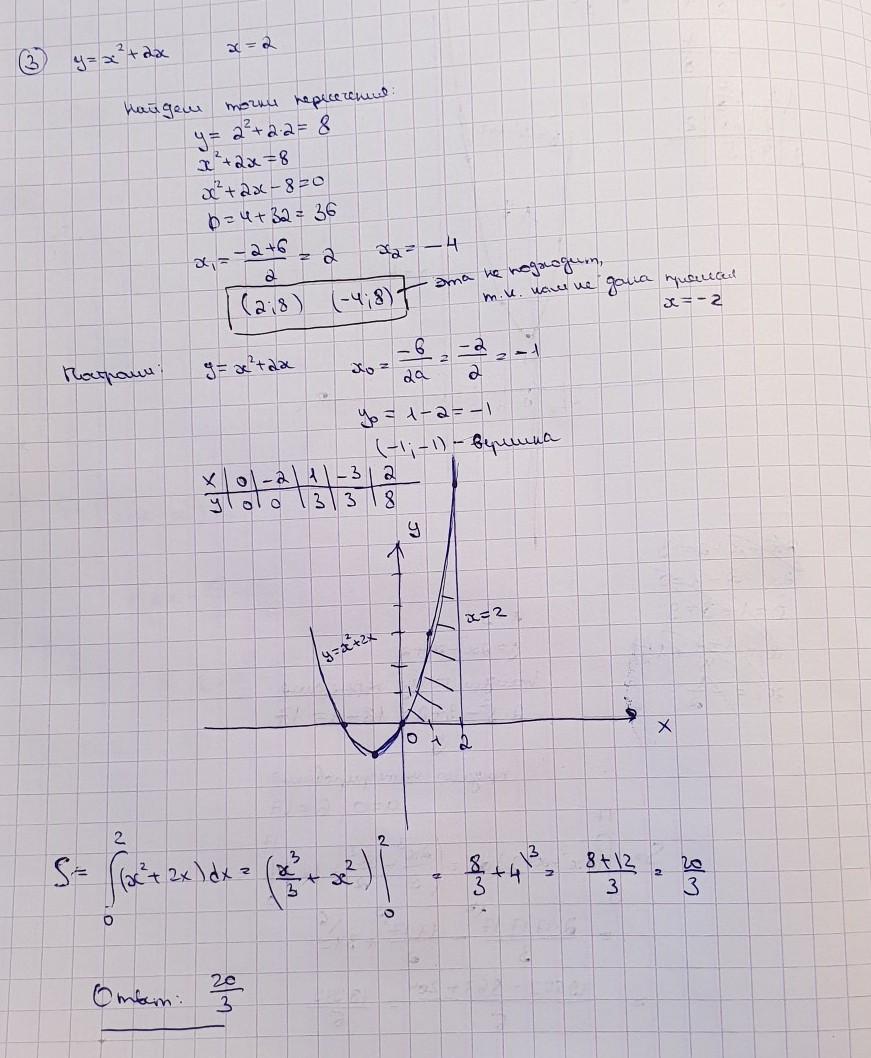 ③ y = x² + 2x x = 2
Найдем точки пересечения:
y = 2² + 2·2 = 8
x² + 2x = 8
x² + 2x − 8 = 0
D = 4 + 32 = 36
x₁ = (−2+6)/2 = 2 x₂ = −4
(2; 8) (−4; 8) эта не подходит,
т.к. нам не дана прямая
x = −2
Построим: y = x² + 2x x₀ = −б/2a = −2/2 = −1
y₀ = 1 − 2 = −1
(−1; −1) − вершина
x | 0 | −2 | 1 | −3 | 2
y | 0 | 0 | 3 | 3 | 8
y
x = 2
y = x² + 2x
1
0 1 2 x
S = ∫₀² (x² + 2x) dx = (x³/3 + x²) |₀² = 8/3 + 4\³ = (8+12)/3 = 20/3
Ответ: 20/3